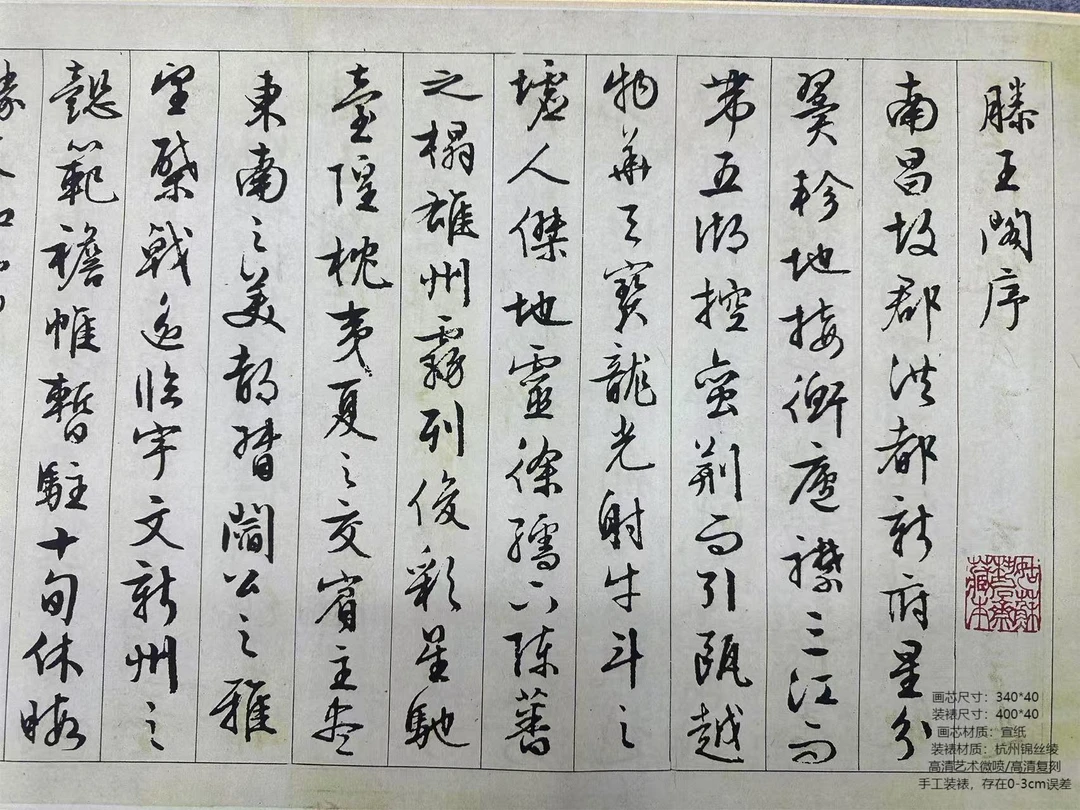 滕王閣序
南昌故郡洪都新府星分
翼軫地接衡廬襟三江而
帶五湖控蠻荊而引甌越
物華天寶龍光射牛斗之
墟人傑地靈徐孺下陳蕃
之榻雄州霧列俊彩星馳
臺隍枕夷夏之交賓主盡
東南之美都督閻公之雅
望棨戟遙臨宇文新州之
懿範襜帷暫駐十旬休暇
画芯尺寸：340*40
装裱尺寸：400*40
画芯材质：宣纸
装裱材质：杭州锦丝绫
高清艺术微喷/高清复刻
手工装裱，存在0-3cm误差